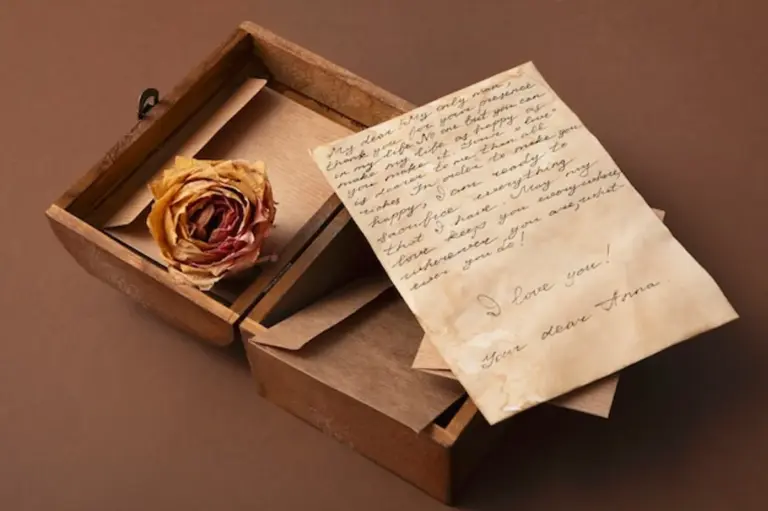 My dear My only man,
thank you for your presence
in my life No one but you can
make my life as happy as
you make it. Your "live"
is dearer to me than all
riches In order to make you
happy, I am ready to
sacrifice everything
that I have. May my
love keep you everywhere,
wherever you are, what
ever you do!
I love you!
Your dear Anna